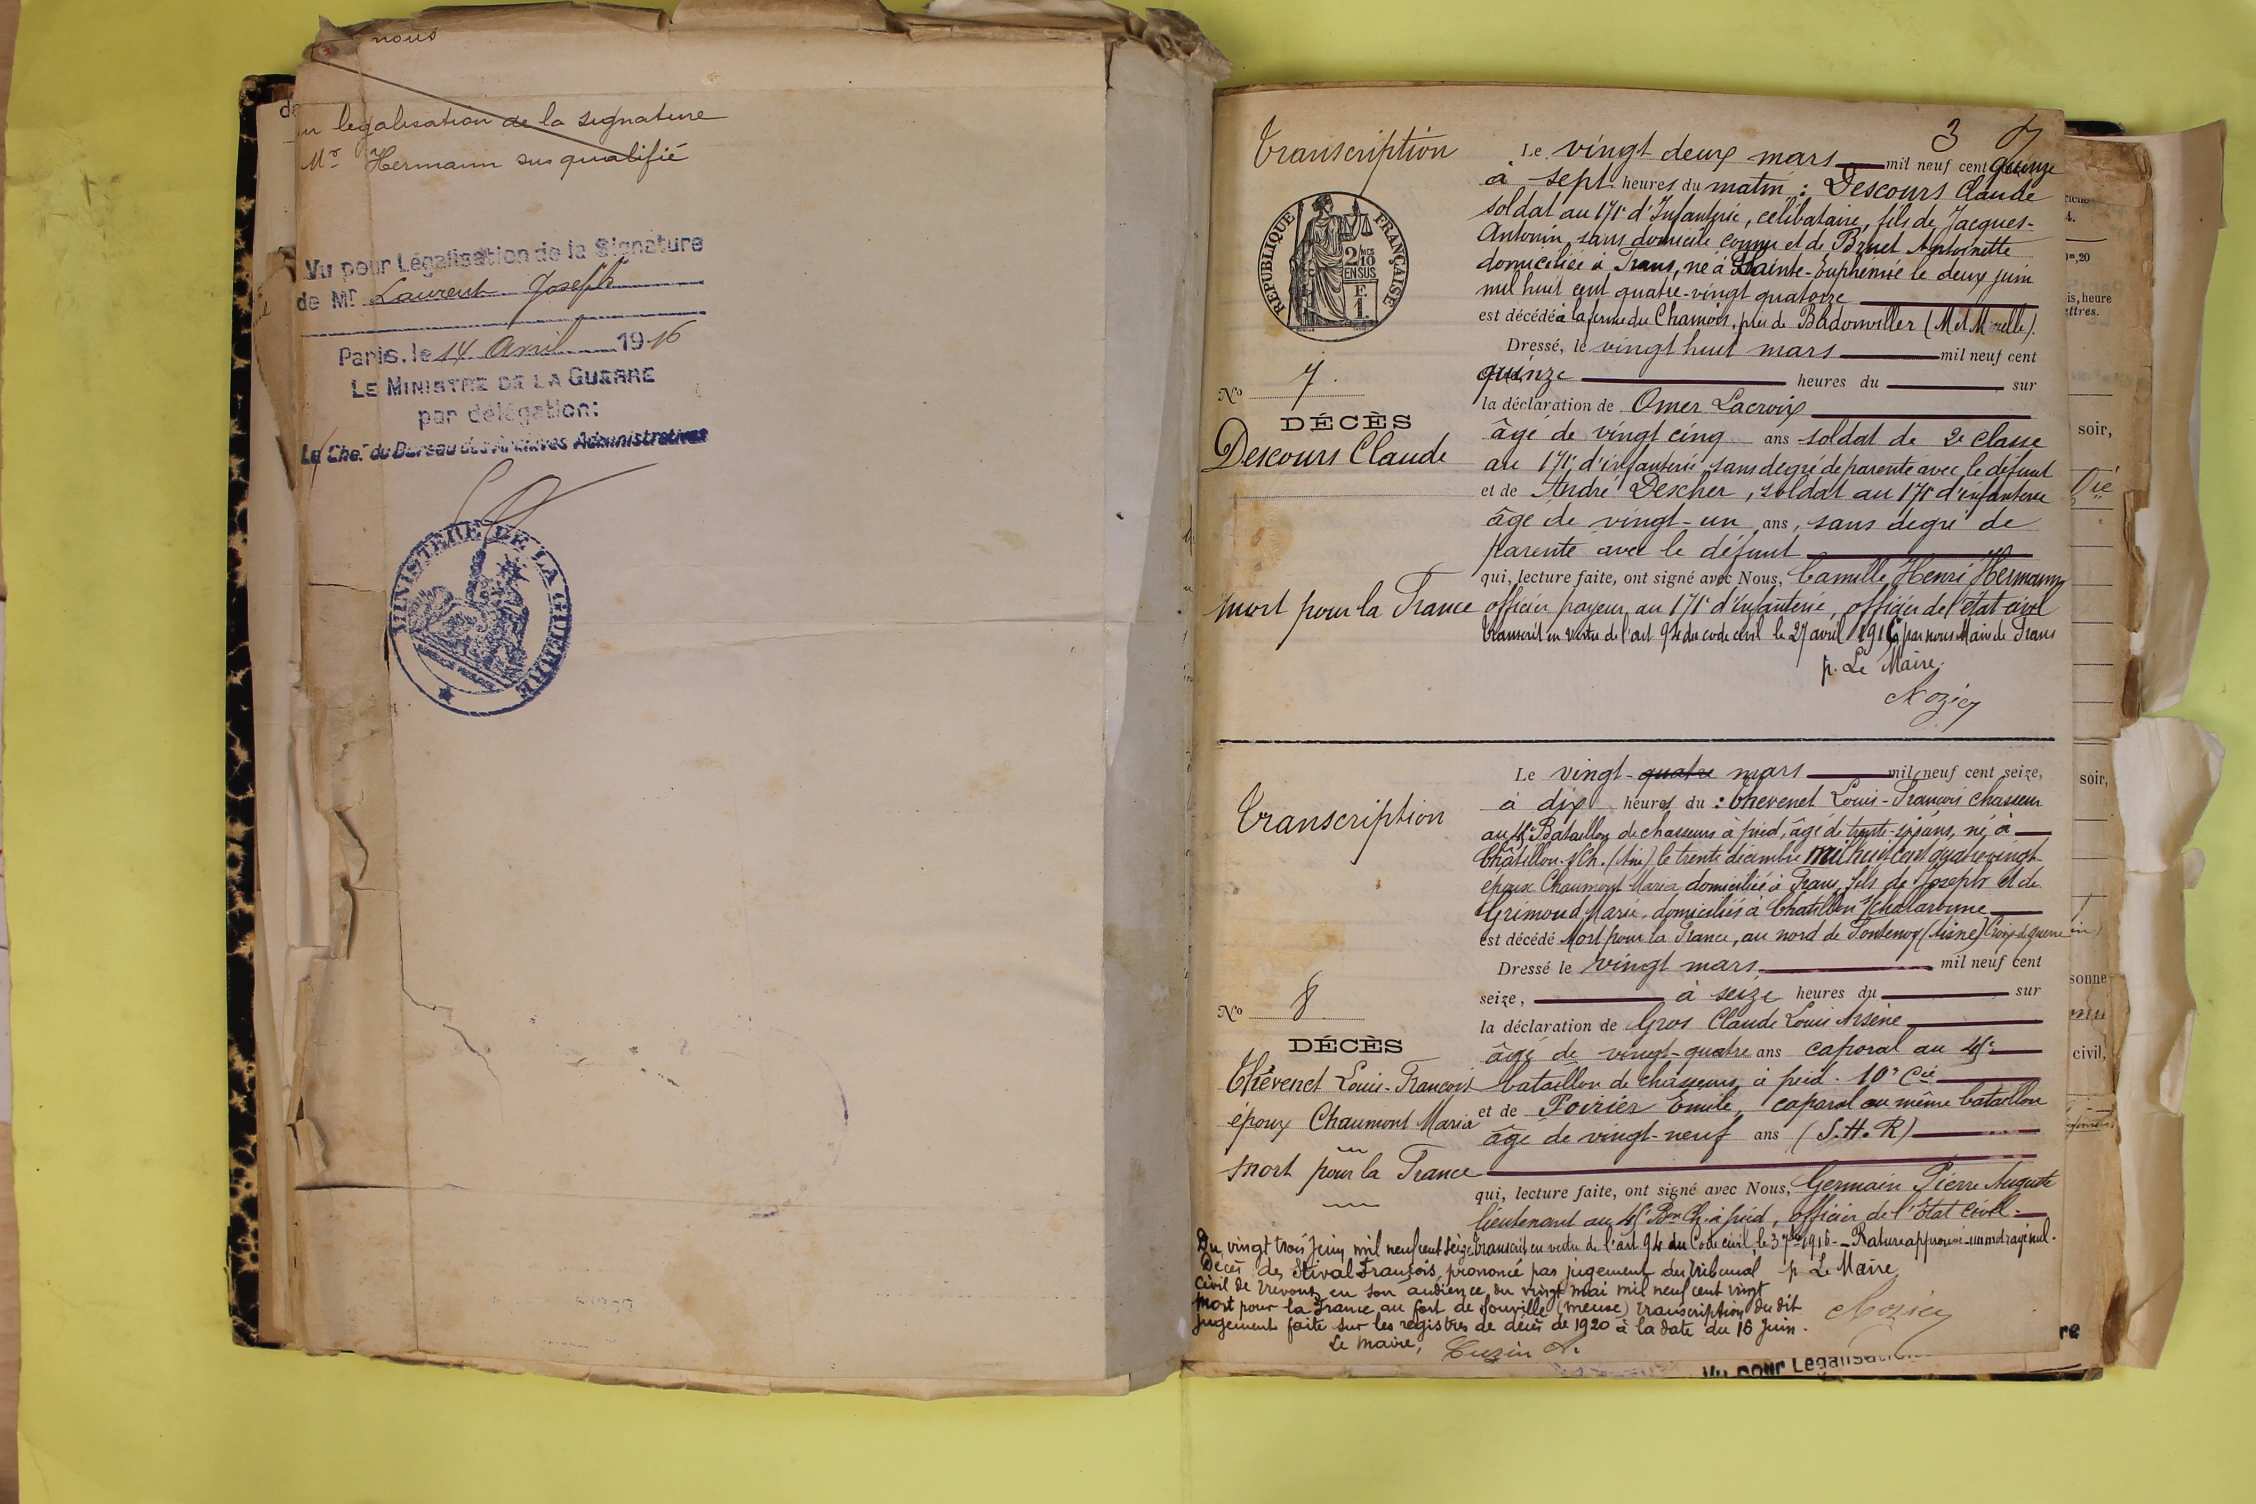 nous
légalisation de la signature
Mr Hermann sus qualifié
Vu pour Légalisation de la Signature
de Mr Laurent Joseph
Paris, le 14 Avril 1916
LE MINISTRE DE LA GUERRE
par délégation:
Le Chef du Bureau des Archives Administratives
MINISTÈRE DE LA GUERRE
3
Transcription
RÉPUBLIQUE FRANÇAISE
2/10
EN SUS
F.
1.
No 7.
DÉCÈS
Descours Claude
mort pour la France
Le vingt deux mars mil neuf cent quinze
à sept heures du matin : Descours Claude
soldat au 171e d'Infanterie, célibataire, fils de Jacques-
Antonin, sans domicile connu et de Brunet Antoinette
domiciliée à Trans, né à Sainte-Euphémie le deux juin
mil huit cent quatre-vingt quatorze
est décédé à la ferme du Chamois, près de Badonviller (M et Moselle).
Dressé, le vingt huit mars mil neuf cent
quinze heures du sur
la déclaration de Omer Lacroix
âgé de vingt cinq ans soldat de 2e classe
au 171e d'infanterie sans degré de parenté avec le défunt
et de André Descher, soldat au 171e d'infanterie
âgé de vingt-un ans, sans degré de
parenté avec le défunt
qui, lecture faite, ont signé avec Nous, Camille Henri Hermann
officier payeur au 171e d'infanterie, officier de l'état civil
Transcrit en vertu de l'art 94 du code civil le 27 avril 1916 par nous Maire de Trans
p. Le Maire.
Nozicy
Transcription
No 8
DÉCÈS
Thévenet Louis-François
époux Chaumont Maria
mort pour la France
Le vingt-quatre mars mil neuf cent seize,
à dix heures du : Thevenet Louis-François chasseur
au 4e Bataillon de chasseurs à pied, âgé de trente-six ans, né à
Châtillon-s/Ch. (Ain) le trente décembre mil huit cent quatre vingt
époux Chaumont Maria domiciliée à Trans, fils de Joseph et de
Grimoud Marie, domiciliés à Chatillon s/Chalaronne
est décédé Mort pour la France, au nord de Fontenoy (Aisne) Croix de guerre
Dressé le vingt mars mil neuf cent
seize, à seize heures du sur
la déclaration de Gros Claude Louis Arsène
âgé de vingt-quatre ans caporal au 4e
bataillon de chasseurs à pied. 10e Cie
et de Poirier Emile, caporal au même bataillon
âgé de vingt-neuf ans (S.H.R)
qui, lecture faite, ont signé avec Nous, Germain Pierre Auguste
lieutenant au 4e Bon Ch. à pied, officier de l'Etat Civil.
transcrit en vertu de l'art 94 du Code civil, le 3 7bre 1916 - Rature approuvée - un mot rayé nul.
p Le Maire
Nozicy
Du vingt trois Juin mil neuf cent seize
Décès de Stival François, prononcé par jugement du Tribunal
Civil de Trévoux en son audience du vingt mai mil neuf cent vingt
Mort pour la France au fort de Souville (Meuse) transcription du dit
jugement faite sur les registres de décès de 1920 à la date du 16 Juin.
Le Maire,
Cuzin A.
soir,
is, heure
ettres.
soir,
sonne
civil,
Vu pour Légalisation